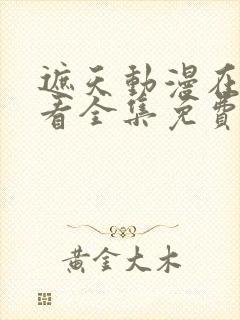 遮天動漫在
看全集免費
黃金大木